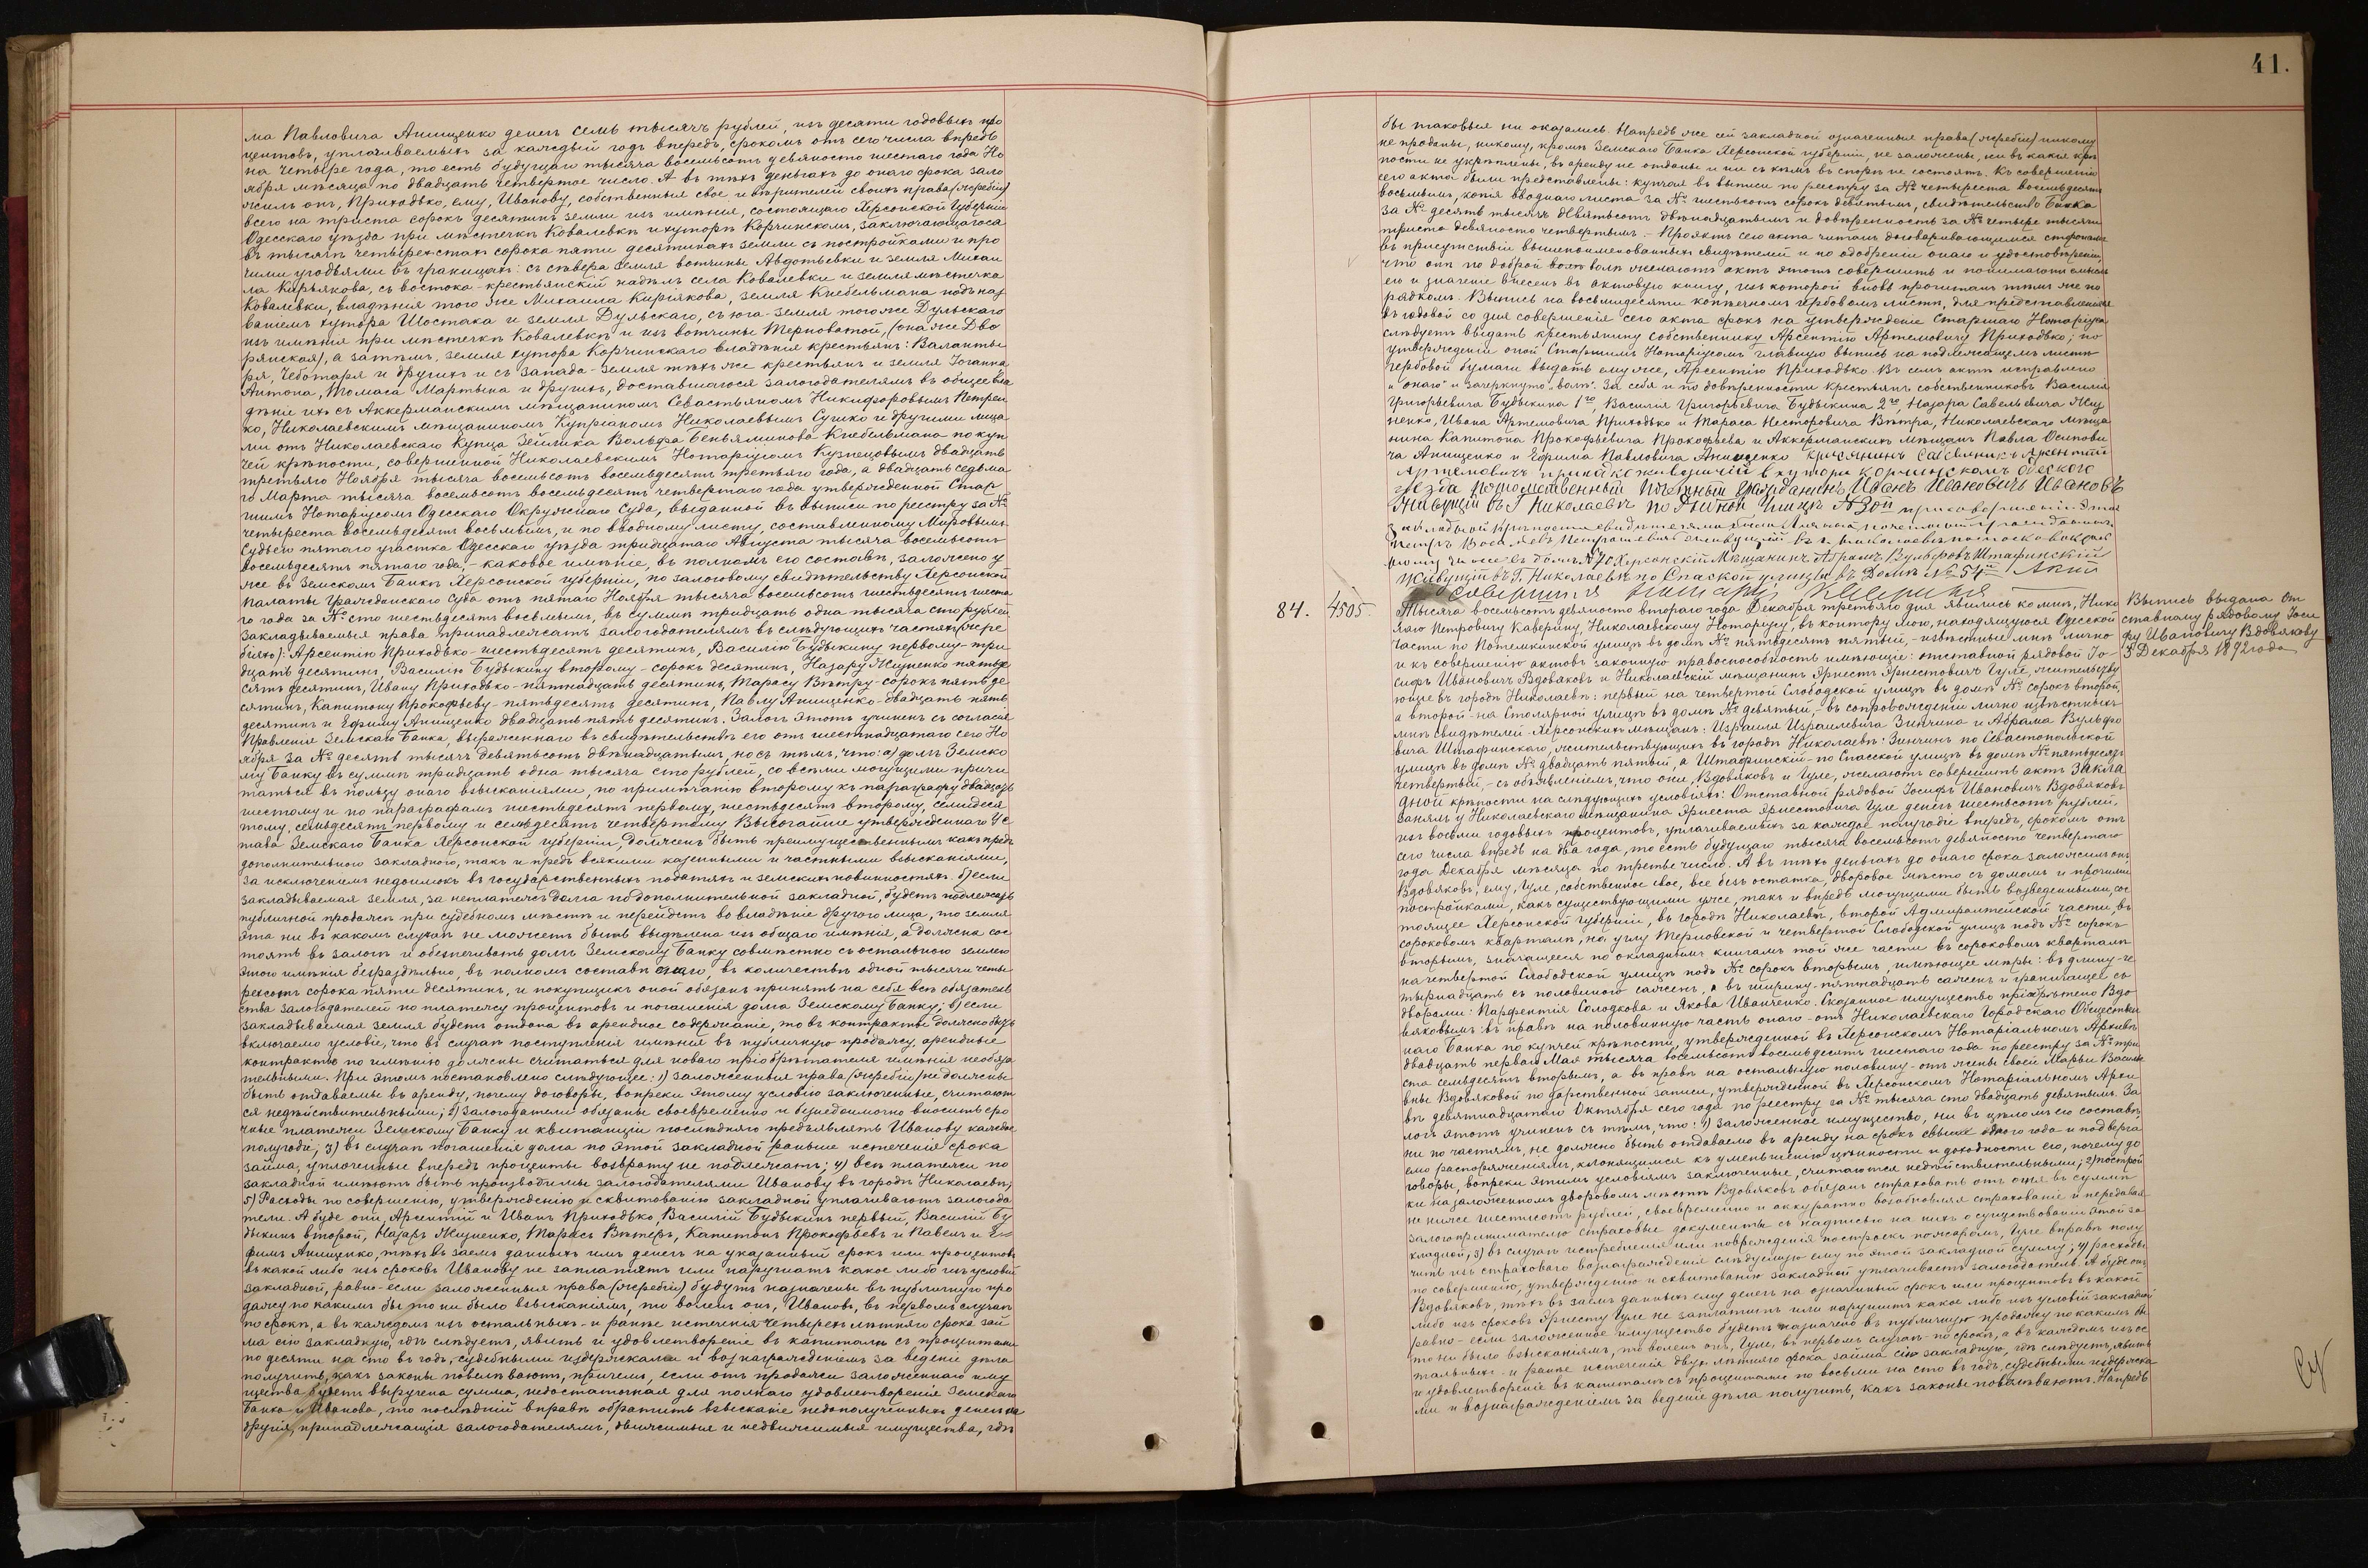 ма Павловича Анищенко денегъ семь тысячъ рублей, изъ десяти годовыхъ про
центовъ, уплачиваемыхъ за каждый годъ впередъ, срокомъ отъ сего числа впредь
на четыре года, то есть будущаго тысяча восемьсотъ девяносто шестаго года Но
ября мѣсяца по двадцать четвертое число. А въ тѣхъ деньгахъ до онаго срока зало
жилъ онъ, Приходько, ему, Иванову, собственныя свое и вѣрителей своихъ права (жребіи)
всего на триста сорокъ десятинъ земли изъ имѣнія, состоящаго Херсонской Губерніи
Одесскаго уѣзда при мѣстечкѣ Ковалевкѣ и хуторѣ Корчинскомъ, заключающагося
въ тысячѣ четырехстахъ сорока пяти десятинахъ земли съ постройками и про
чими угодьями въ границахъ: съ сѣвера земля вотчины Авдотьевки и земля Михаи
ла Кирьякова, съ востока - крестьянскій надѣлъ села Ковалевки и земля мѣстечка
Ковалевки, владѣнія того же Михаила Кирiякова, земля Кнебельмана подъ наз
ваніемъ хутора Шостака и земля Дульскаго, съ юга - земля того же Дульскаго
изъ имѣнія при мѣстечкѣ Ковалевкѣ и изъ вотчины Терноватой, (она же Дво
рянская), а затѣмъ, земля хутора Корчинскаго владѣнія крестьянъ: Валанты
ря, Чеботаря и другихъ и съ запада - земля тѣхъ же крестьянъ и земля Іоганна
Антона, Томаса Мартына и другихъ, доставшагося залогодателямъ въ общее вла
дѣніе ихъ съ Аккерманскимъ мѣщаниномъ Севастьяномъ Никифоровымъ Петрен
ко, Николаевскимъ мѣщаниномъ Кипріаномъ Николаевымъ Сушко и другими лица
ми отъ Николаевскаго Купца Зейлика Вольфа Беньяминова Кнебельмана по куп
чей крѣпости, совершенной Николаевскимъ Нотаріусомъ Кузнецовымъ двадцать
третьяго Ноября тысяча восемьсотъ восемьдесятъ третьяго года, а двадцать седьма
го Марта тысяча восемьсотъ восемьдесятъ четвертаго года утвержденной Стар
шимъ Нотаріусомъ Одесскаго Окружнаго Суда, выданной въ выписи по реестру за №
четыреста восемьдесятъ восьмымъ, и по вводному листу, составленному Мировымъ
Судьею пятаго участка Одесскаго уѣзда тридцатаго Августа тысяча восемьсотъ
восемьдесятъ пятаго года, - каковое имѣніе, въ полномъ его составѣ, заложено у
же въ Земскомъ Банкѣ Херсонской губерніи, по залоговому свидѣтельству Херсонской
Палаты Гражданскаго Суда отъ пятаго Ноября тысяча восемьсотъ шестьдесятъ шеста
го года за № сто шестьдесятъ восьмымъ, въ суммѣ тридцать одна тысяча сто рублей.
Закладываемыя права принадлежатъ залогодателямъ въ слѣдующихъ частяхъ (жре
біяхъ): Арсентію Приходько - шестьдесятъ десятинъ, Василію Будыкину первому - три
дцать десятинъ, Василію Будыкину второму - сорокъ десятинъ, Назару Жученко пятьде
сятъ десятинъ, Ивану Приходько - пятнадцать десятинъ, Тарасу Вѣтру - сорокъ пять де
сятинъ, Капитону Прокофьеву - пятьдесятъ десятинъ, Павлу Анищенко - двадцать пять
десятинъ и Ефиму Анищенко двадцать пять десятинъ. Залогъ этотъ учиненъ съ согласія
Правленія Земскаго Банка, выраженнаго въ свидѣтельствѣ его отъ шестнадцатаго сего Но
ября за № десять тысячъ девятьсотъ двѣнадцатымъ, но съ тѣмъ, что: а) долгъ Земско
му Банку въ суммѣ тридцать одна тысяча сто рублей, со всѣми могущими причи
таться въ пользу онаго взысканіями, по примѣчанію второму къ параграфу двадцать
шестому и по параграфамъ шестьдесятъ первому, шестьдесятъ второму, семидеся
тому, семьдесятъ первому и семьдесятъ четвертому Высочайше утвержденнаго Ус
тава Земскаго Банка Херсонской губерніи, долженъ быть преимущественнымъ какъ предъ
дополнительною закладною, такъ и предъ всякими казенными и частными взысканіями,
за исключеніемъ недоимокъ въ государственныхъ податяхъ и земскихъ повинностяхъ. б) если
закладываемая земля, за неплатежъ долга по дополнительной закладной, будетъ подлежать
публичной продажѣ при судебномъ мѣстѣ и перейдетъ во владѣніе другого лица, то земля
эта ни въ какомъ случаѣ не можетъ быть выдѣлена изъ общаго имѣнія, а должна сос
тоять въ залогѣ и обезпечивать долгъ Земскому Банку совмѣстно съ остальною землею
этого имѣнія безраздѣльно, въ полномъ составѣ онаго, въ количествѣ одной тысячи четы
рехсотъ сорока пяти десятинъ, и покупщикъ оной обязанъ принять на себя всѣ обязатель
ства залогодателей по платежу процентовъ и погашенія долга Земскому Банку; в) если
закладываемая земля будетъ отдана въ арендное содержаніе, то въ контрактѣ должно быть
включаемо условіе, что въ случаѣ поступленія имѣнія въ публичную продажу, арендные
контракты по имѣнію должны считаться для новаго пріобрѣтателя имѣнія необяза
тельными. При этомъ постановлено слѣдующее: 1) заложенныя права (жребіи) не должны
быть отдаваемы въ аренду, почему договоры, вопреки этому условію заключенные, считают
ся недѣйствительными; 2) Залогодатели обязаны своевременно и бездоимочно вносить сро
чные платежи Земскому Банку и квитанціи послѣдняго предъявлять Иванову каждое
полугодіе; 3) въ случаѣ погашенія долга по этой закладной раньше истеченія срока
займа, уплоченные впередъ проценты возврату не подлежатъ; 4) всѣ платежи по
закладной имѣютъ быть производимы залогодателями Иванову въ городѣ Николаевѣ;
5) Расходы по совершенію, утвержденію и сквитованію закладной уплачиваютъ залогода
тели. А буде они, Арсентій и Иванъ Приходько, Василій Будыкинъ первый, Василій Бу
дыкинъ второй, Назаръ Жученко, Тарасъ Вѣтеръ, Капитонъ Прокофьевъ и Павелъ и Е
фимъ Анищенко, тѣхъ въ заемъ данныхъ имъ денегъ на указанный срокъ или процентовъ
въ какой либо изъ сроковъ Иванову не заплатятъ или нарушатъ какое либо изъ условій
закладной, равно - если заложенныя права (жребіи) будутъ назначены въ публичную про
дажу по какимъ бы то ни было взысканіямъ, то воленъ онъ, Ивановъ, въ первомъ случаѣ
по срокѣ, а въ каждомъ изъ остальныхъ - и ранѣе истеченія четырехлѣтняго срока зай
ма сію закладную, гдѣ слѣдуетъ, явить и удовлетвореніе въ капиталѣ съ процентами
по десяти на сто въ годъ, судебными издержками и вознагражденіемъ за веденіе дѣла
получить, какъ законы повелѣваютъ, причемъ, если отъ продажи заложеннаго иму
щества будетъ выручена сумма, недостаточная для полнаго удовлетворенія Земскаго
Банка и Иванова, то послѣдній вправѣ обратить взысканіе недополученныхъ денегъ на
другія, принадлежащія залогодателямъ, движимыя и недвижимыя имущества, гдѣ
41.
бы таковыя ни оказались. Напредь же сей закладной означенныя права (жребіи) никому
не проданы, никому, кромѣ Земскаго Банка Херсонской губерніи, не заложены, ни въ какія крѣ
пости не укрѣплены, въ аренду не отданы и ни съ кѣмъ въ спорѣ не состоятъ. Къ совершенію
сего акта были представлены: купчая въ выписи по реестру за № четыреста восемьдесятъ
восьмымъ, копія вводнаго листа за № шестьсотъ сорокъ девятымъ, свидѣтельство Банка
за № десять тысячъ девятьсотъ двѣнадцатымъ и довѣренность за № четыре тысячи
триста девяносто четвертымъ. - Проектъ сего акта читанъ договаривающимся сторонамъ
въ присутствіи вышепоименованныхъ свидѣтелей и по одобреніи онаго и удостовѣреніи,
что они по доброй волѣ желаютъ актъ этотъ совершить и понимаютъ смыслъ
его и значеніе внесенъ въ актовую книгу, изъ которой вновь прочитанъ тѣмъ же по
рядкомъ. Выпись на восьмидесяти копѣечномъ гербовомъ листѣ, для представленія
въ годовой со дня совершенія сего акта срокъ на утвержденіе Старшаго Нотаріуса
слѣдуетъ выдать крестьянину собственнику Арсентію Артемовичу Приходько; по
утвержденіи оной Старшимъ Нотаріусомъ главную выпись на подлежащемъ листѣ
гербовой бумаги выдать ему же, Арсентію Приходько. Въ семъ актѣ исправлено
„онаго“ и зачеркнуто „волѣ“. За себя и по довѣренности крестьянъ собственниковъ Василія
Григорьевича Будыкина 1го, Василія Григорьевича Будыкина 2го, Назара Савельевича Жу
ченко, Ивана Артемовича Приходько и Тараса Несторовича Вѣтра, Николаевскаго мѣща
нина Капитона Прокофьевича Прокофьева и Аккерманскихъ мѣщанъ Павла Осипови
ча Анищенко и Ефима Павловича Анищенко Арсентій
Артемовичъ
уезда потомственный почетный гражданинъ Иванъ Ивановичъ Ивановъ
Живущій въ Г Николаевѣ по
свидѣтелями
Петръ
Херсонскій Мѣщанинъ Абрамъ Вульфовъ Штафинскій
Живущій въ Г. Николаевѣ по Спаской улицы въ Домѣ № 54й Актъ
совершилъ Нотаріусъ Каверинъ
84. 4505. Тысяча восемьсотъ девяносто втораго года Декабря третьяго дня явились ко мнѣ, Нико
лаю Петровичу Каверину, Николаевскому Нотаріусу, въ контору мою, находящуюся Одесской
части по Потемкинской улицѣ въ домѣ № пятьдесятъ пятый, - извѣстные мнѣ лично
и къ совершенію актовъ законную правоспособность имѣющіе: отставной рядовой Іо
сифъ Ивановичъ Вдовяковъ и Николаевскій мѣщанинъ Эрнестъ Эрнестовичъ Гуле, жительству
ющіе въ городѣ Николаевѣ: первый на четвертой Слободской улицѣ въ домѣ № сорокъ второй,
а второй - на Столярной улицѣ въ домѣ № девятый, - въ сопровожденіи лично извѣстныхъ
мнѣ свидѣтелей - Херсонскихъ мѣщанъ: Израиля Израилевича Зинчина и Абрама Вульфо
вича Штафинскаго, жительствующихъ въ городѣ Николаевѣ: Зинчинъ по Севастопольской
улицѣ въ домѣ № двадцать пятый, а Штафинскій - по Спасской улицѣ въ домѣ № пятьдесятъ
четвертый, - съ объявленіемъ, что они, Вдовяковъ и Гуле, желаютъ совершить актъ закла
дной крѣпости на слѣдующихъ условіяхъ: Отставной рядовой Іосифъ Ивановичъ Вдовяковъ
занялъ у Николаевскаго мѣщанина Эрнеста Эрнестовича Гуле денегъ шестьсотъ рублей,
изъ восьми годовыхъ процентовъ, уплачиваемыхъ за каждое полугодіе впередъ, срокомъ отъ
сего числа впредь на два года, то есть будущаго тысяча восемьсотъ девяносто четвертаго
года Декабря мѣсяца по третье число. А въ тѣхъ деньгахъ до онаго срока заложилъ онъ,
Вдовяковъ, ему, Гуле, собственное свое, все безъ остатка, дворовое мѣсто съ домомъ и прочими
постройками, какъ существующими уже, такъ и впредь могущими быть возведенными, сос
тоящее Херсонской губерніи, въ городѣ Николаевѣ, второй Адмиралтейской части, въ
сороковомъ кварталѣ, на углу Терновской и четвертой Слободской улицъ подъ № сорокъ
вторымъ, значащееся по окладнымъ книгамъ той же части въ сороковомъ кварталѣ
на четвертой Слободской улицѣ подъ № сорокъ вторымъ, имѣющее мѣры: въ длину - че
тырнадцать съ половиною саженъ, а въ ширину - пятнадцать саженъ и граничащее съ
дворами: Парфентія Солодкова и Якова Иванченко. Сказанное имущество пріобрѣтено Вдо
вяковымъ: въ правѣ на половинную часть онаго - отъ Николаевскаго Городскаго Обществен
наго Банка по купчей крѣпости, утвержденной въ Херсонскомъ Нотаріальномъ Архивѣ
двадцать перваго Мая тысяча восемьсотъ восемьдесятъ шестаго года по реестру за № три
ста семьдесятъ вторымъ, а въ правѣ на остальную половину - отъ жены своей Марьи Василь
евны Вдовяковой по дарственной записи, утвержденной въ Херсонскомъ Нотаріальномъ Архи
вѣ девятнадцатаго Октября сего года по реестру за № тысяча сто двадцать девятымъ. За
логъ этотъ учиненъ съ тѣмъ, что: 1) заложенное имущество, ни въ цѣломъ его составѣ,
ни по частямъ, не должно быть отдаваемо въ аренду на срокъ свыше одного года и подверга
емо распоряженіямъ, клонящимся къ уменьшенію цѣнности и доходности его, почему до
говоры, вопреки этимъ условіямъ заключенные, считаются недѣйствительными; 2) построй
ки на заложенномъ дворовомъ мѣстѣ Вдовяковъ обязанъ страховать отъ огня въ суммѣ
не ниже шестисотъ рублей, своевременно и аккуратно возобновляя страхованіе и передавая
залогопринимателю страховые документы съ надписью на нихъ о существованіи этой за
кладной; 3) въ случаѣ истребленія или поврежденія построекъ пожаромъ, Гуле вправѣ полу
чить изъ страховаго вознагражденія слѣдуемую ему по этой закладной сумму; 4) расходы
по совершенію, утвержденію и сквитованію закладной уплачиваетъ залогодатель. А буде онъ,
Вдовяковъ, тѣхъ въ заемъ данныхъ ему денегъ на означенный срокъ или процентовъ въ какой
либо изъ сроковъ Эрнесту Гуле не заплатитъ или нарушитъ какое либо изъ условій закладной
равно - если заложенное имущество будетъ назначено въ публичную продажу по какимъ бы
то ни было взысканіямъ, то воленъ онъ, Гуле, въ первомъ случаѣ - по срокѣ, а въ каждомъ изъ ос
тальныхъ - и ранѣе истеченія двухлѣтняго срока займа сію закладную, гдѣ слѣдуетъ, явить
и удовлетвореніе въ капиталѣ съ процентами по восьми на сто въ годъ, судебными издержка
ми и вознагражденіемъ за веденіе дѣла получить, какъ законы повелѣваютъ. Напредь
Выпись выдана от
ставному рядовому Іоси
фу Ивановичу Вдовякову
3 Декабря 1892 года